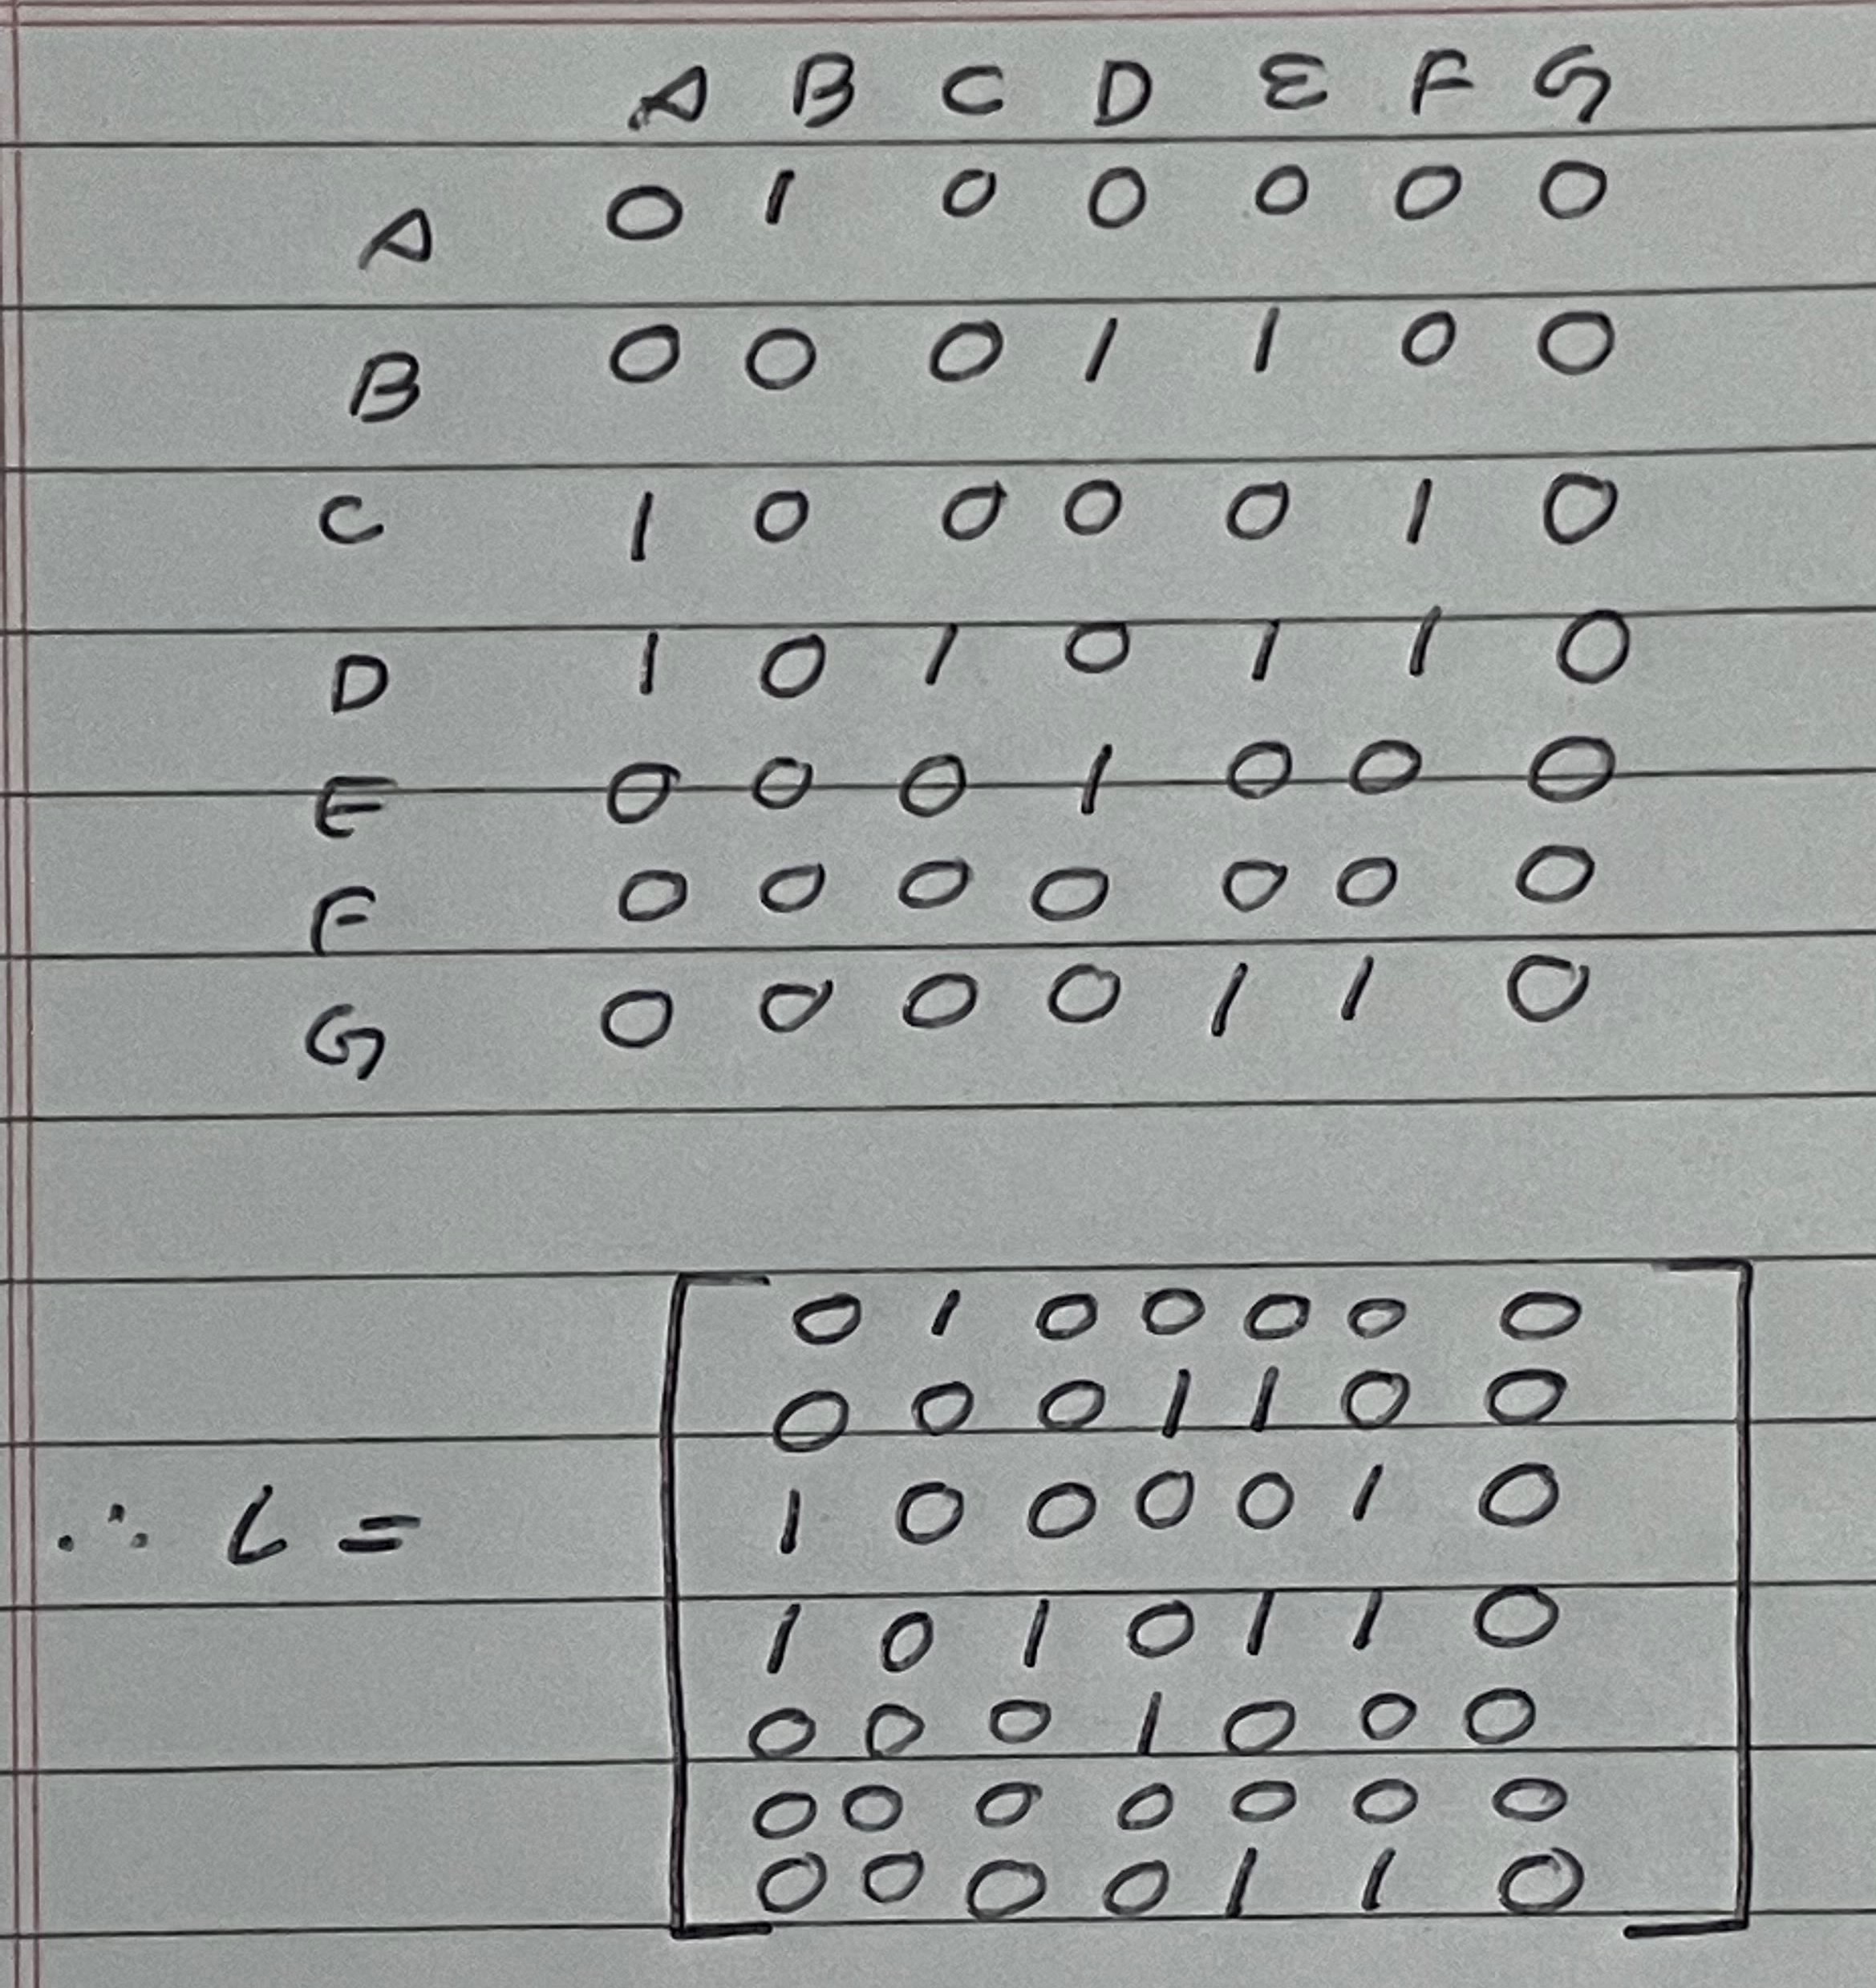 A B C D E F G
A 0 1 0 0 0 0 0
B 0 0 0 1 1 0 0
C 1 0 0 0 0 1 0
D 1 0 1 0 1 1 0
E 0 0 0 1 0 0 0
F 0 0 0 0 0 0 0
G 0 0 0 0 1 1 0
0 1 0 0 0 0 0
0 0 0 1 1 0 0
∴ L = 1 0 0 0 0 1 0
1 0 1 0 1 1 0
0 0 0 1 0 0 0
0 0 0 0 0 0 0
0 0 0 0 1 1 0